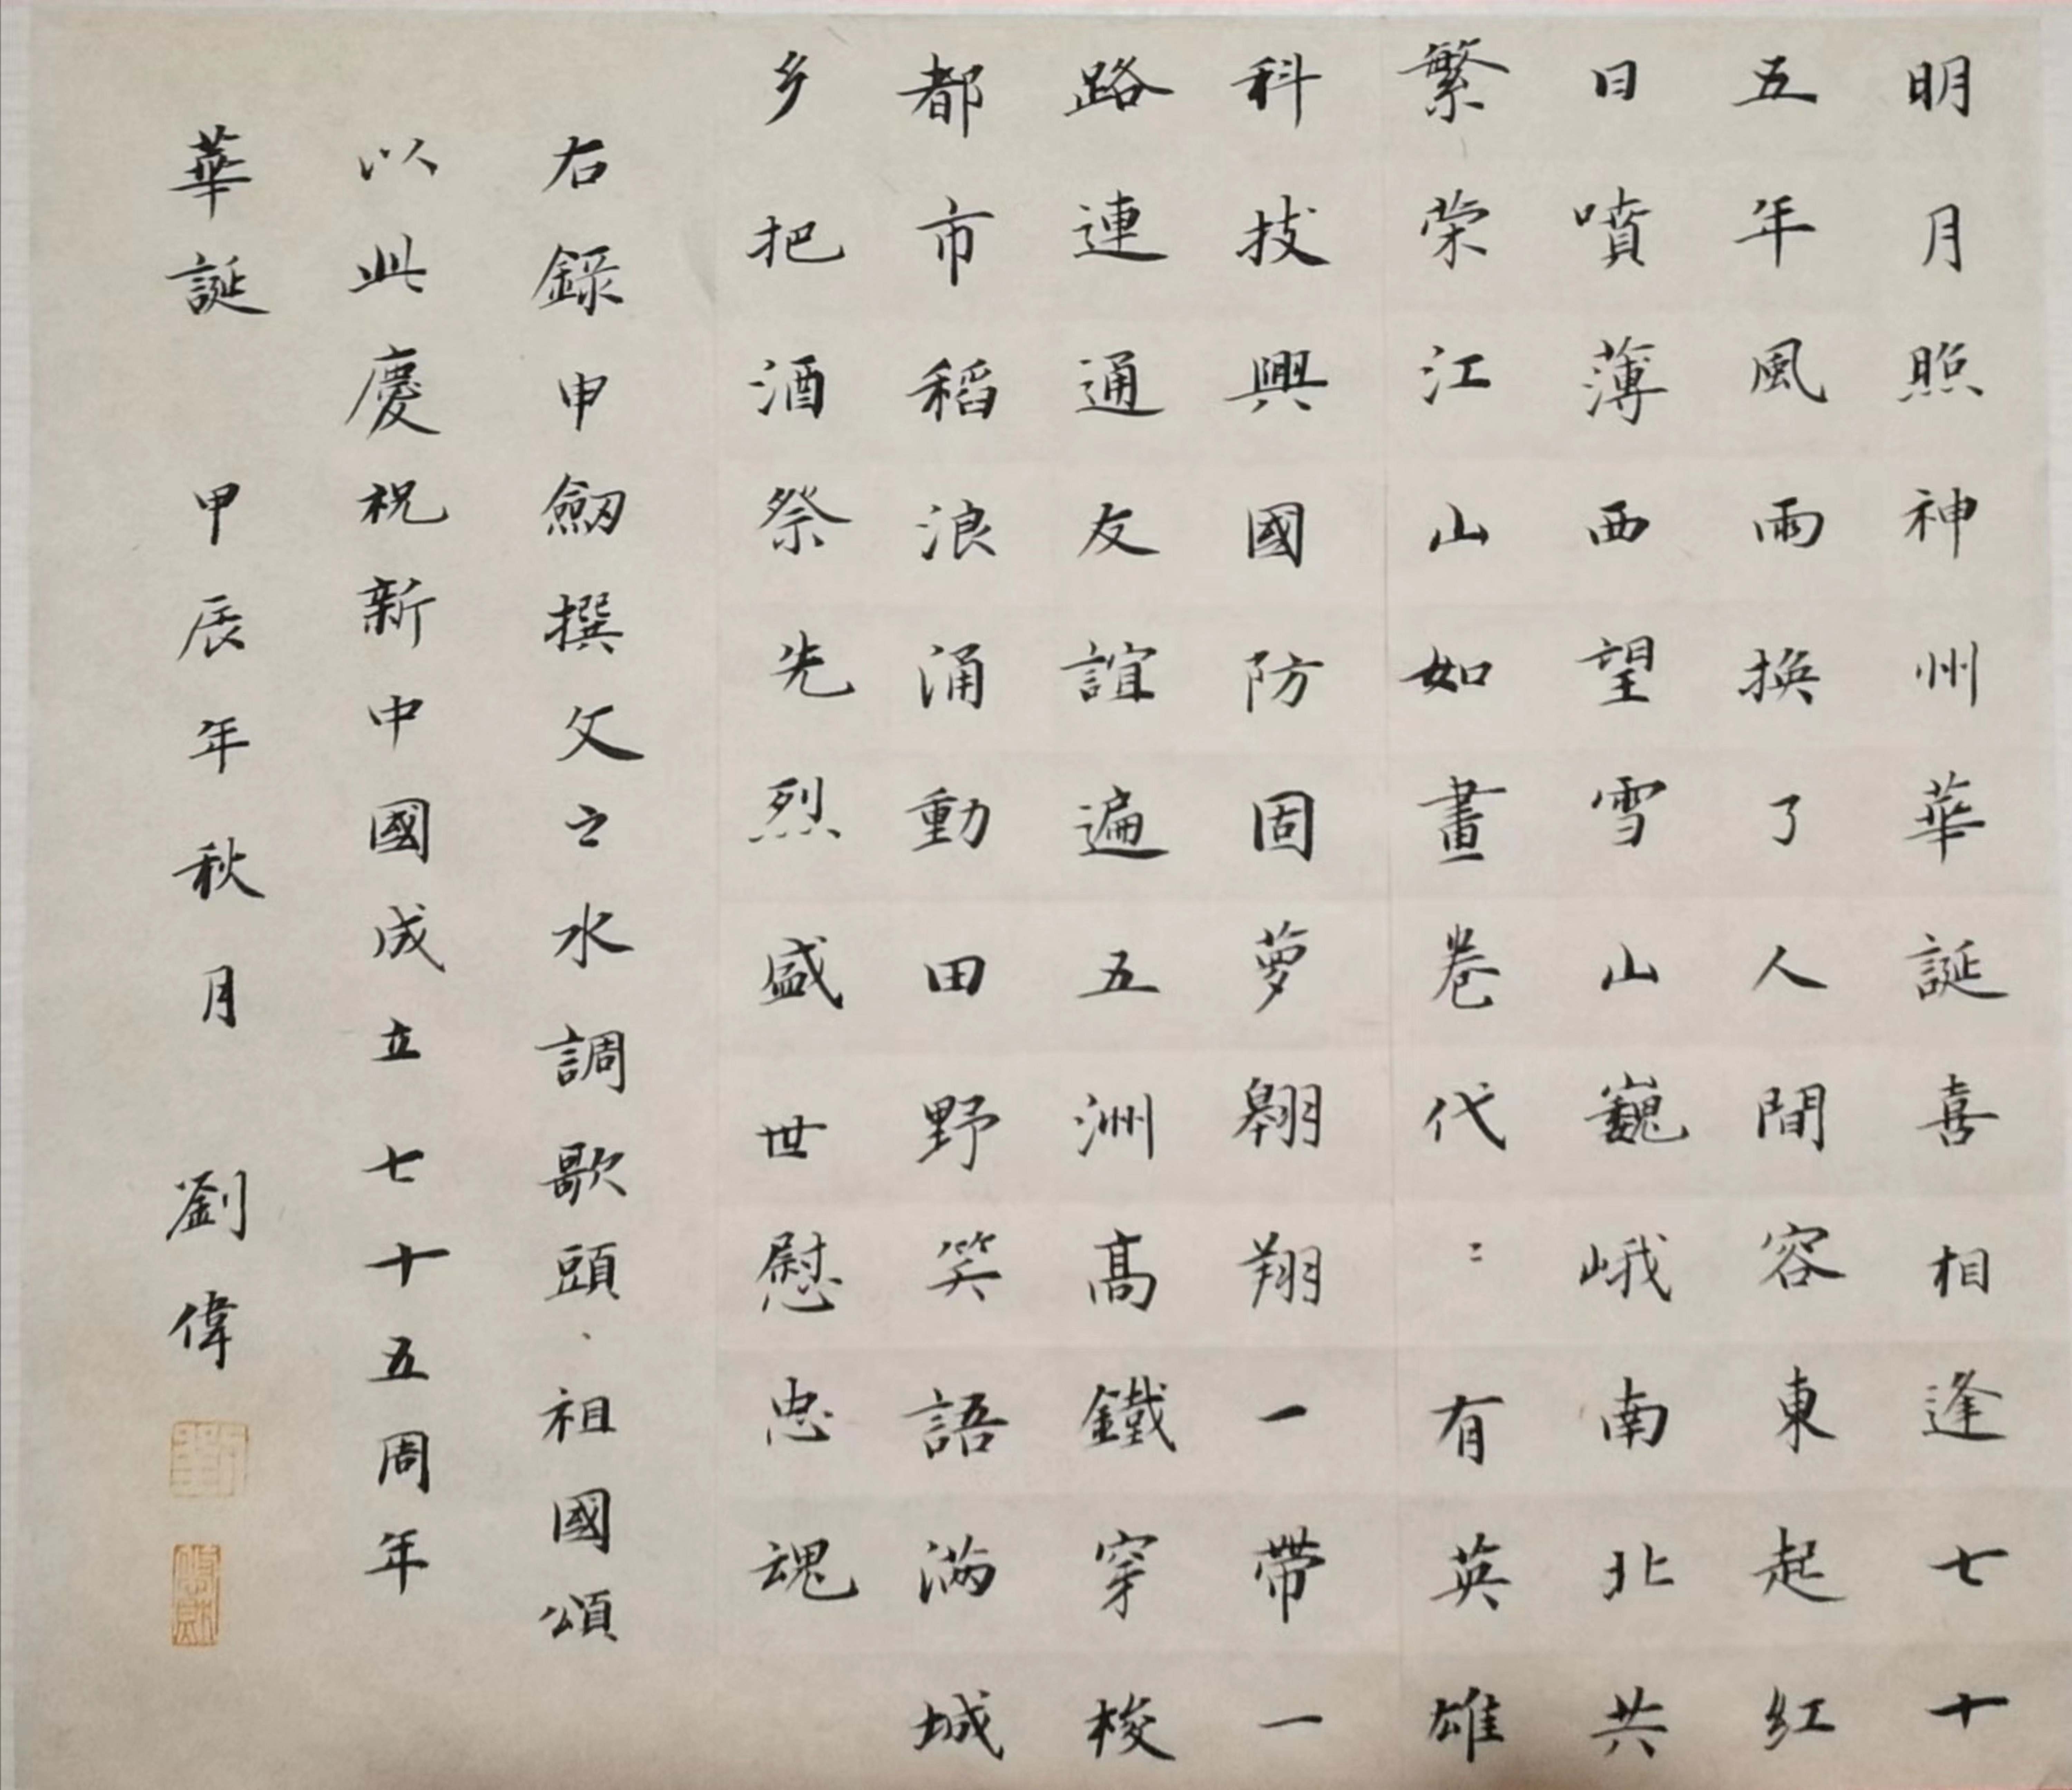 明月照神州華誕喜相逢七十
五年風雨换了人間容東起紅
日噴薄西望雪山巍峨南北共
繁荣江山如畫卷代〻有英雄
科技興國防固夢翱翔一帶一
路連通友誼遍五洲高鐵穿梭
都市稻浪涌動田野笑語滿城
乡把酒祭先烈盛世慰忠魂
右錄申劒撰文之水調歌頭、祖國頌
以此慶祝新中國成立七十五周年
華誕 甲辰年秋月 劉偉